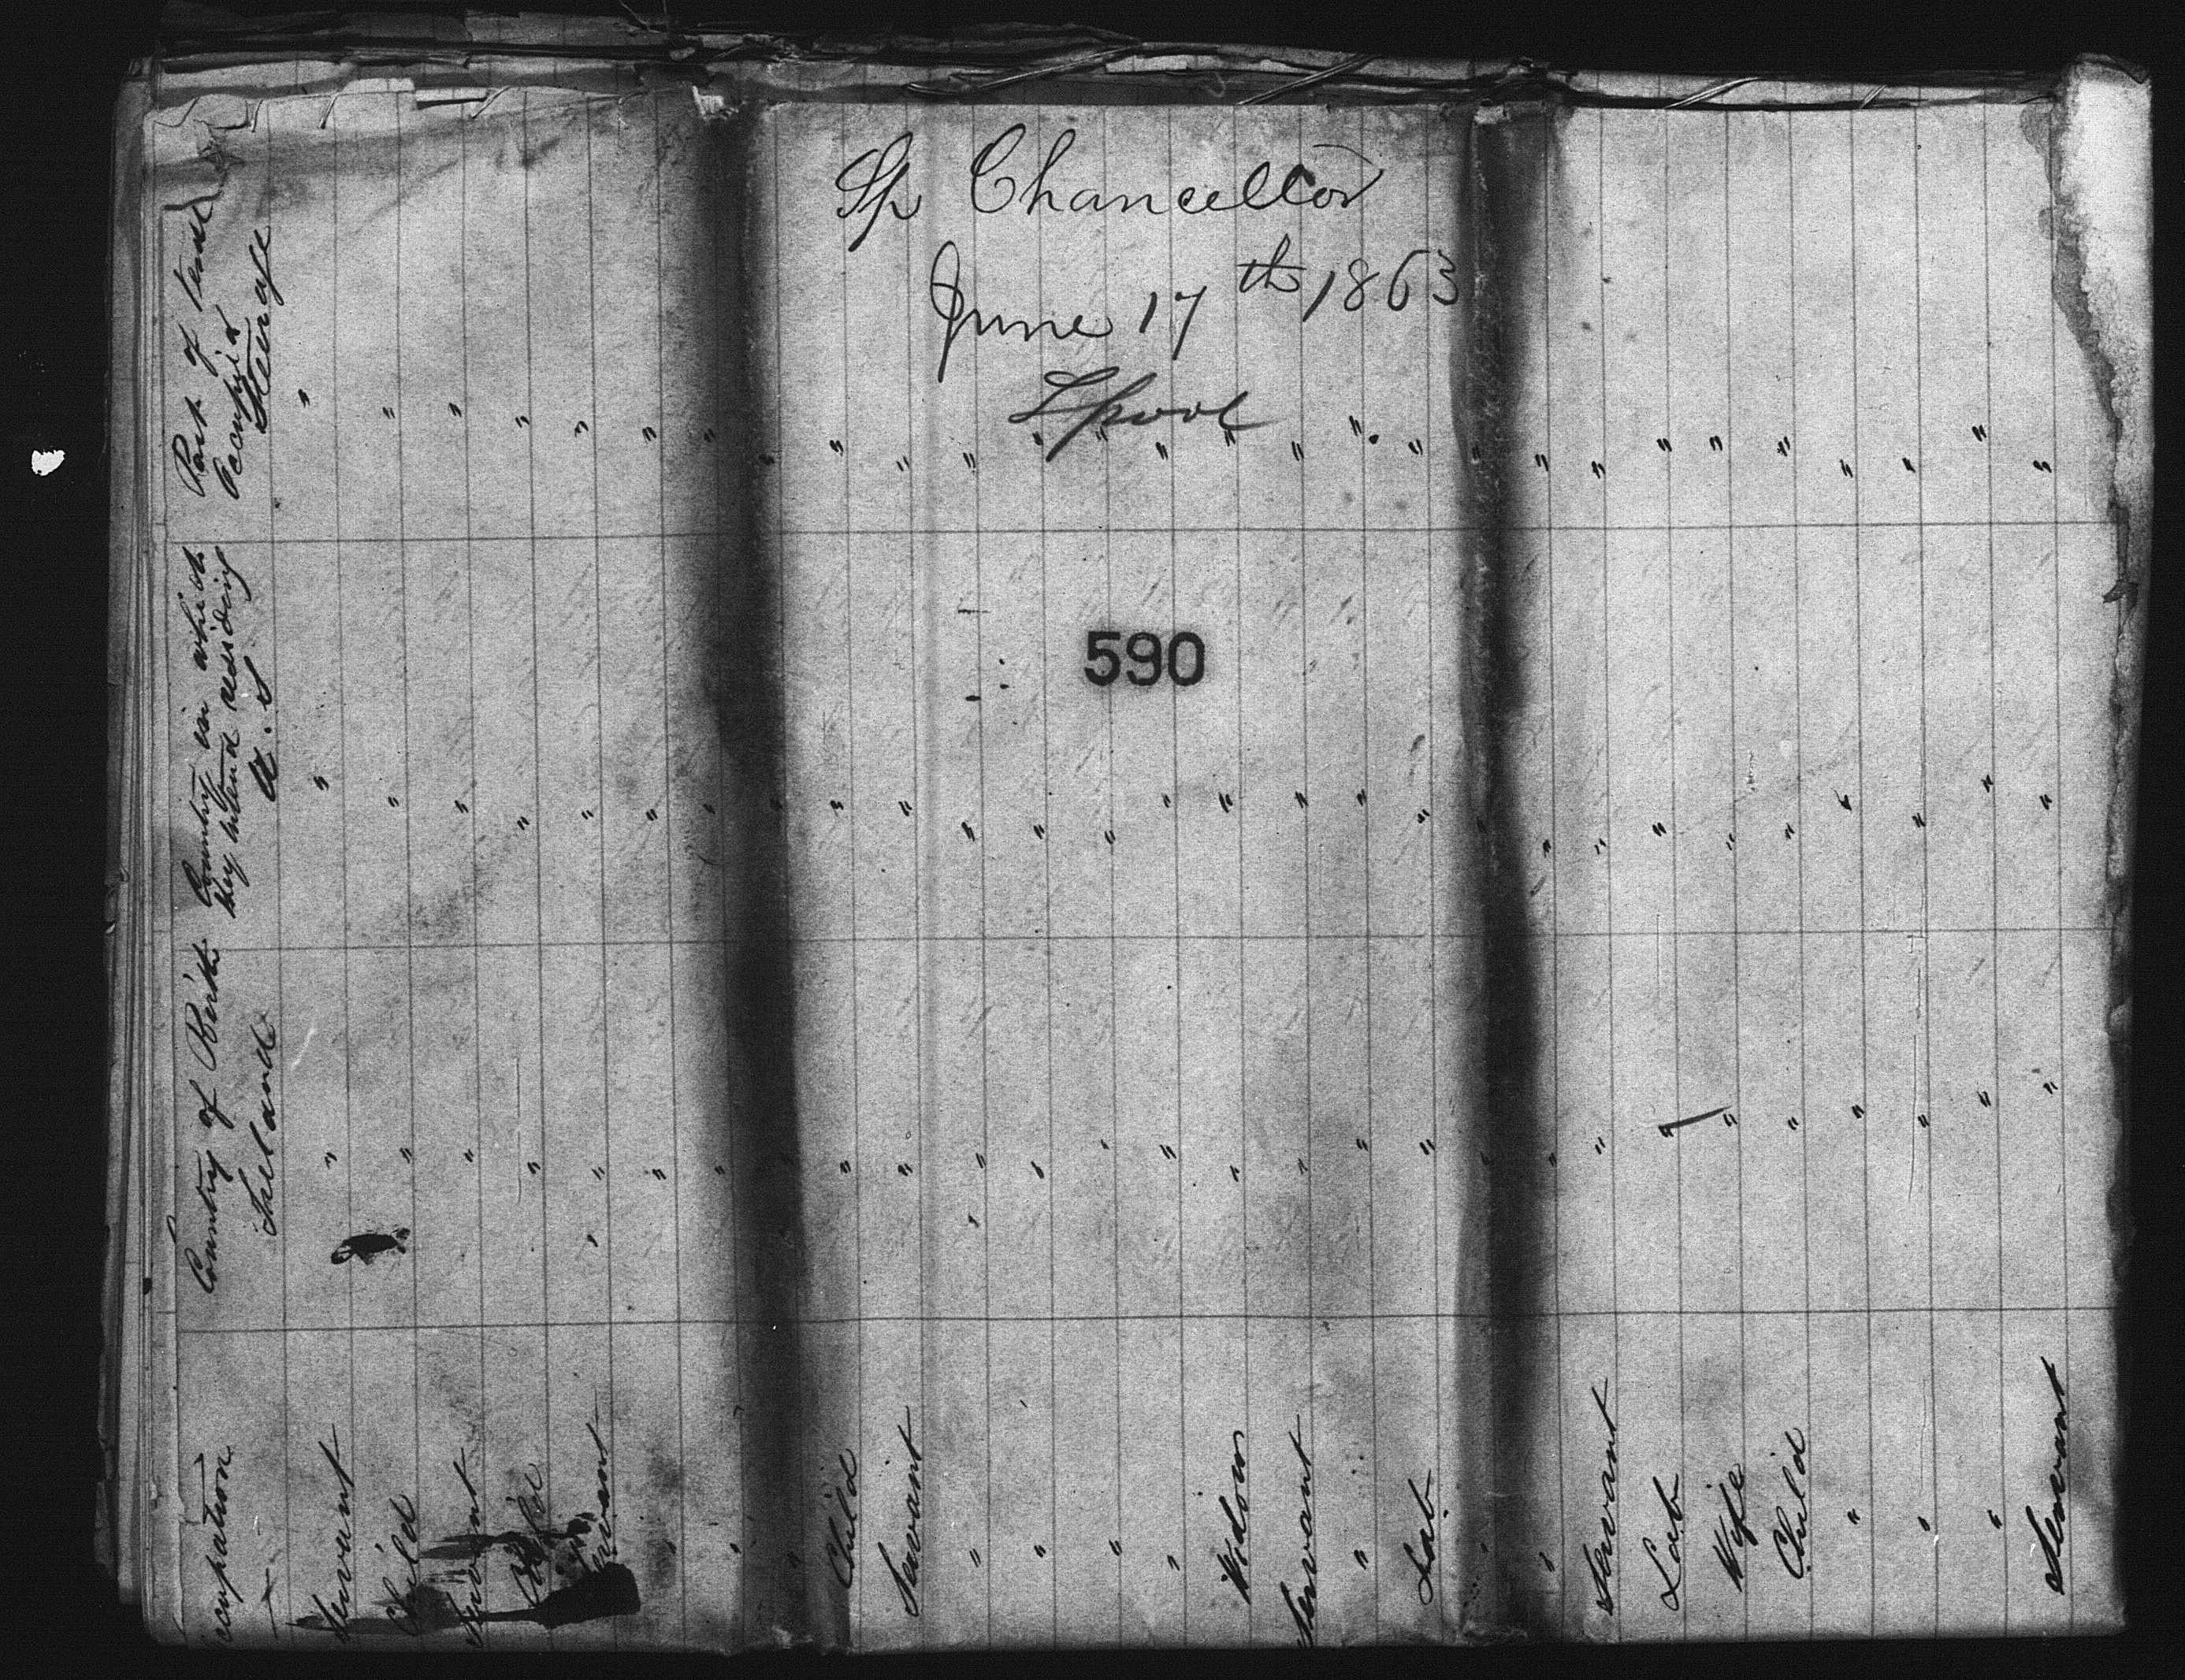 Sp Chancellor
June 17th 1863
Lpool
590
Part of
Occupied
Steerage
" " " " " " " " " " " " " " " " " " " " " " " " " " "
Country in which
they intend residing
U. S
" " " " " " " " " " " " " " " " " " " " " " " " " " "
Country of Birth
Ireland
" " " " " " " " " " " " " " " " " " " " " " " " " " "
ccupation
Servant
Child
Servant
Child
" " "
Child
Servant
" " " "
Widow
Servant
"
Lab
" "
Servant
Lab
Wife
Child
" " "
Servant